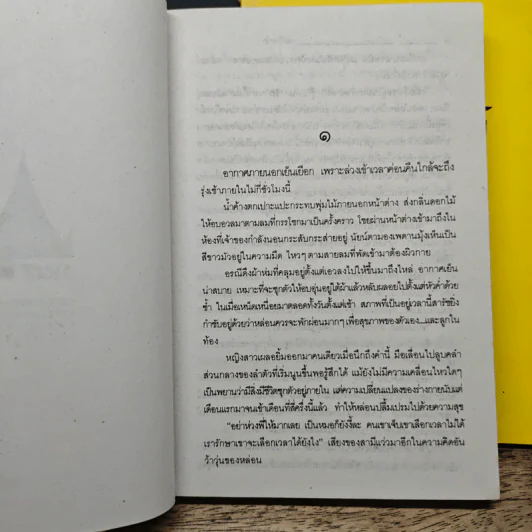 ๑
อากาศภายนอกเย็นเยือก เพราะล่วงเข้าเวลาค่อนคืนใกล้จะถึง
รุ่งเช้าภายในไม่กี่ชั่วโมงนี้
น้ำค้างตกเปาะแปะกระทบพุ่มไม้ภายนอกหน้าต่าง ส่งกลิ่นดอกไม้
ให้อบอวลมาตามลมที่กรรโชกมาเป็นครั้งคราว โชยผ่านหน้าต่างเข้ามาถึงใน
ห้องที่เจ้าของกำลังนอนกระสับกระส่ายอยู่ นัยน์ตามองเพดานมุ้งเห็นเป็น
สีขาวมัวอยู่ในความมืด ไหวๆ ตามสายลมที่พัดเข้ามาต้องผิวกาย
อรณีดึงผ้าห่มที่คลุมอยู่ตั้งแต่เอวลงไปให้ขึ้นมาถึงไหล่ อากาศเย็น
น่าสบาย เหมาะที่จะซุกตัวให้อบอุ่นอยู่ใต้ผ้าแล้วหลับผล็อยไปตั้งแต่หัวค่ำด้วย
ซ้ำ ในเมื่อเหน็ดเหนื่อยมาตลอดทั้งวันตั้งแต่เช้า สภาพที่เป็นอยู่เวลานี้สารัชยิ่ง
กำชับอยู่ด้วยว่าหล่อนควรจะพักผ่อนมากๆ เพื่อสุขภาพของตัวเอง...และลูกใน
ท้อง
หญิงสาวเผลอยิ้มออกมาคนเดียวเมื่อนึกถึงคำนี้ มือเลื่อนไปลูบคลำ
ส่วนกลางของลำตัวที่เริ่มนูนขึ้นพอรู้สึกได้ แม้ยังไม่มีความเคลื่อนไหวใดๆ
เป็นพยานว่ามีสิ่งมีชีวิตซุกตัวอยู่ภายใน แต่ความเปลี่ยนแปลงของร่างกายนับแต่
เดือนแรกมาจนเข้าเดือนที่สี่ครึ่งนี้แล้ว ทำให้หล่อนปลื้มเปรมไปด้วยความสุข
“อย่าห่วงพี่ให้มากเลย เป็นหมอก็ยังงี้ละ คนเขาเจ็บเขาเลือกเวลาไม่ได้
เรารักษาเขาจะเลือกเวลาได้ยังไง” เสียงของสามีแว่วมาอีกในความคิดอัน
ว้าวุ่นของหล่อน